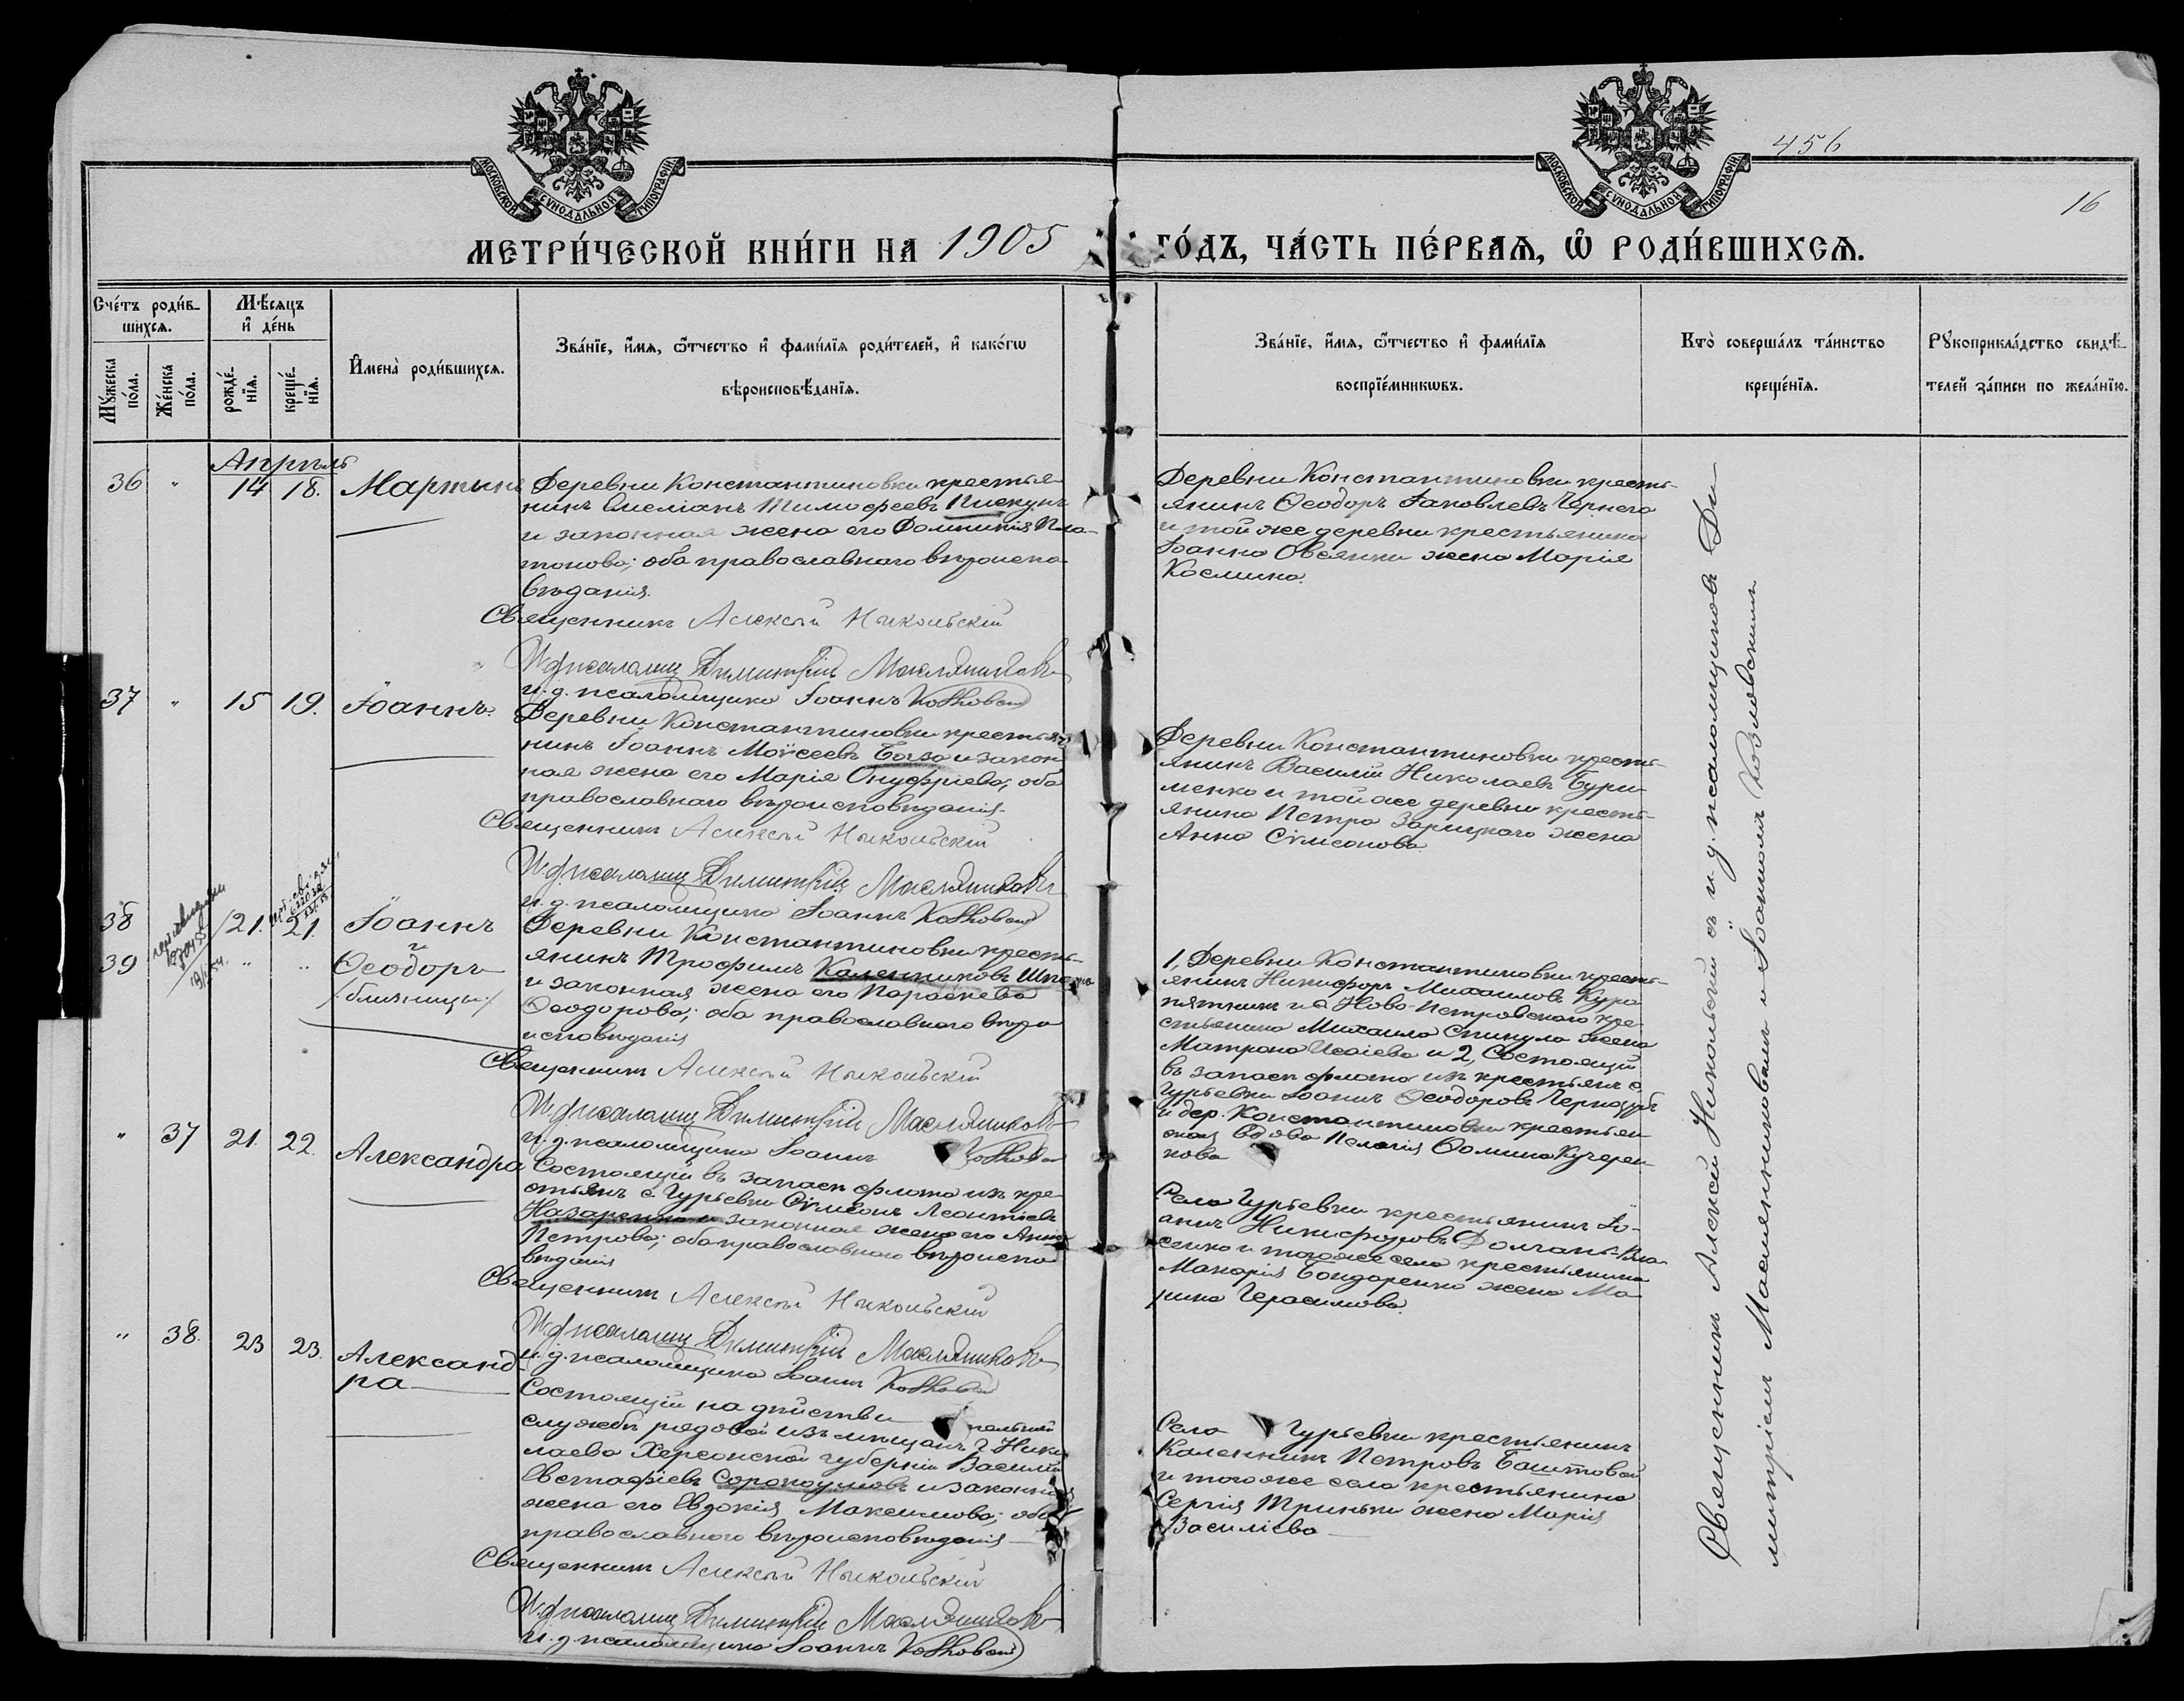 МОСКОВСКОЙ СУНОДАЛЬНОЙ ТИПОГРАФІИ
МОСКОВСКОЙ СУНОДАЛЬНОЙ ТИПОГРАФІИ
456
16
МЕТРИ́ЧЕСКОЙ КНИ́ГИ НА 1905 ГО́ДЪ, ЧА́СТЬ ПЕ́РВАѦ, Ѽ РОДИ́ВШИХСѦ.
Сче́тъ роди́в-
шихсѧ.
Мѣ́сѧцъ
и҆ де́нь
Мꙋ́жеска
по́ла.
Же́нска
по́ла.
рожде́-
нїѧ.
креще́-
нїѧ.
И҆мена̀ роди́вшихсѧ.
Зва́нїе, и҆́мѧ, ѻ҆́тчество и҆ фами́лїѧ роди́телей, и҆ како́гѡ
вѣроисповѣ́данїѧ.
Зва́нїе, и҆́мѧ, ѻ҆́тчество и҆ фами́лїѧ
воспрїе́мникѡвъ.
Кто̀ соверша́лъ та́инство
креще́нїѧ.
Рꙋкоприкла́дство свидѣ́-
телей за́писи по жела́нїю.
Апрѣль
36 " 14 18. Мартынъ
Деревни Константиновки крестья-
нинъ Емеліанъ Тимофеевъ Пискунъ
и законная жена его Домникія Пла-
тонова; оба православнаго вѣроиспо-
вѣданія.
Священникъ Алексѣй Никольскій
И.д. псаломщ Димитрій Масляниковъ
и. д. псаломщика Іоаннъ Козловскій
Деревни Константиновки кресть-
янинъ Ѳеодоръ Іаковлевъ Чернега
и той же деревни крестьянина
Іоанна Овсянки жена Марія
Космина.
37 " 15 19. Іоаннъ.
Деревни Константиновки крестья-
нинъ Іоаннъ Моѵсеевъ Богза и закон-
ная жена его Марія Онуфріева; оба
православнаго вѣроисповѣданія.
Священникъ Алексѣй Никольскій
И.д. псаломщ Димитрій Масляниковъ
и. д. псаломщика Іоаннъ Козловскій
Деревни Константиновки кресть-
янинъ Василій Николаевъ Бури-
менко и той же деревни кресть-
янина Петра Зарицкаго жена
Анна Сѵмеонова.
38 21. 21. Іоаннъ
и
39 " " Ѳеодоръ
/близнецы/
Деревни Константиновки кресть-
янинъ Трофимъ Каленниковъ
и законная жена его Параскева
Ѳеодорова; оба православнаго вѣро-
исповѣданія
Священникъ Алексѣй Никольскій
И.д. псаломщ Димитрій Масляниковъ
и. д. псаломщика Іоаннъ Козловскій
1, Деревни Константиновки кресть-
янинъ Никифоръ Михаиловъ Куро-
пятникъ и с. Ново-Петровскаго кре-
стьянина Михаила Спинула жена
Матрона Исаіева и 2, Состоящій
въ запасѣ флота изъ крестьянъ с.
Гурьевки Іоаннъ Ѳеодоровъ
и дер. Константиновки крестьян-
ская вдова Пелагія Ѳомина Кучерен-
кова
" 37 21. 22. Александра
Состоящій въ запасѣ флота изъ кре-
стьянъ с. Гурьевки Сѵмеонъ Леонтіевъ
Назаренко и законная жена его Анна
Петрова; оба православнаго вѣроиспо-
вѣданія
Священникъ Алексѣй Никольскій
И.д. псаломщ Димитрій Масляниковъ
и. д. псаломщика Іоаннъ Козловскій
Села Гурьевки крестьянинъ Іо-
аннъ Никифоровъ
сенко и того же села крестьянина
Макарія Бондаренко жена Ма-
рина Герасимова.
" 38. 23 23. Александ-
ра
Состоящій на дѣйстви тельной
службѣ рядовой изъ мѣщанъ г. Нико-
лаева Херсонской губерніи Василій
Евстафіевъ Сорокоумовъ и законная
жена его Евдокія Максимова; оба
православнаго вѣроисповѣданія
Священникъ Алексѣй Никольскій
И.д. псаломщ Димитрій Масляниковъ
и. д. псаломщика Іоаннъ Козловскій
Села Гурьевки крестьянинъ
Каленникъ Петровъ Баштовой
и того же села крестьянина
Сергія Триньки жена Марія
Василіева
Священникъ Алексѣй Никольскій съ и. д. псаломщиковъ Ди-
митріемъ Масленниковымъ и Іоанномъ Козловскимъ